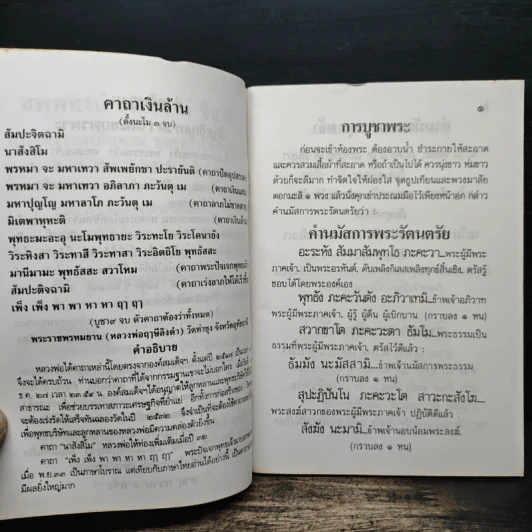 คาถาเงินล้าน
(ตั้งนะโม ๓ จบ)
สัมปะจิตฉามิ
นาสังสิโม
พรหมา จะ มหาเทวา สัพเพยักขา ปะรายันติ (คาถาปัดอุปสรรค)
พรหมา จะ มหาเทวา อภิลาภา ภะวันตุ เม (คาถาเงินแสน)
มหาปุญโญ มหาลาโภ ภะวันตุ เม (คาถาลาภไม่ขาดสาย)
มิเตพาหุหะติ (คาถาเงินล้าน)
พุทธะมะอะอุ นะโมพุทธายะ วิระทะโย วิระโคนายัง
วิระหิงสา วิระทาสี วิระทาสา วิระอิตถิโย พุทธัสสะ
มานีมามะ พุทธัสสะ สวาโหม (คาถาพระปัจเจกพุทธเจ้า)
สัมปะติจฉามิ (คาถาเร่งลาภให้ได้เร็วขึ้น)
เพ็ง เพ็ง พา พา หา หา ฤๅ ฤๅ
(บูชา๙ จบ ตัวคาถาต้องว่าทั้งหมด)
พระราชพรหมยาน (หลวงพ่อฤาษีลิงดำ) วัดท่าซุง จังหวัดอุทัยธานี
คำอธิบาย
หลวงพ่อได้คาถาเหล่านี้โดยตรงจากองค์สมเด็จฯ ตั้งแต่ปี
จึงจะได้ครบถ้วน ท่านบอกว่าคาถาที่ได้จากกรรมฐานเขาจะไม่บอกใคร
สาธารณะ เพื่อช่วยบรรเทาสภาวะเศรษฐกิจที่ย่ำแย่
เพื่อพุทธบริษัทและลูกหลานของหลวงพ่อมีความคล่องตัวยิ่งขึ้น
คาถา "นาสังสิโม" หลวงพ่อให้ท่องเพิ่มเติมเมื่อปี ๓๒
คาถา "เพ็ง เพ็ง พา พา หา หา ฤๅ ฤๅ"
เมื่อ พ.ย.๓๓ เป็นภาษาโบราณ แต่เทียบกับภาษาไทยอ่านได้อย่างนี้
มีผลยิ่งใหญ่มาก
๑
การบูชาพระ
ก่อนจะเข้าห้องพระ ต้องอาบน้ำ ชำระกายให้สะอาด
และควรสวมเสื้อผ้าที่สะอาด หรือถ้าเป็นไปได้ ควรนุ่งขาว ห่มขาว
ด้วยก็จะดีมาก ทำจิตใจให้ผ่องใส จุดธูปเทียนและพวงมาลัย
ดอกมะลิ ๑ พวง แล้วนั่งคุกเข่าประณมมือไว้เพียงหน้าอก กล่าว
คำนมัสการพระรัตนตรัยว่า :
คำนมัสการพระรัตนตรัย
อะระหัง สัมมาสัมพุทโธ ภะคะวา...พระผู้มีพระ
ภาคเจ้า, เป็นพระอรหันต์, ดับเพลิงกิเลสเพลิงทุกข์สิ้นเชิง, ตรัสรู้
ชอบได้โดยพระองค์เอง
พุทธัง ภะคะวันตัง อะภิวาเทมิ...ข้าพเจ้าอภิวาท
พระผู้มีพระภาคเจ้า, ผู้รู้ ผู้ตื่น ผู้เบิกบาน (กราบลง ๑ หน)
สวากขาโต ภะคะวะตา ธัมโม...พระธรรมเป็น
ธรรมที่พระผู้มีพระภาคเจ้า, ตรัสไว้ดีแล้ว :
ธัมมัง นะมัสสามิ...ข้าพเจ้านมัสการพระธรรม
(กราบลง ๑ หน)
สุปะฏิปันโน ภะคะวะโต สาวะกะสังโฆ...
พระสงฆ์สาวกของพระผู้มีพระภาคเจ้า ปฏิบัติดีแล้ว :
สังฆัง นะมามิ...ข้าพเจ้านอบน้อมพระสงฆ์.
(กราบลง ๑ หน)